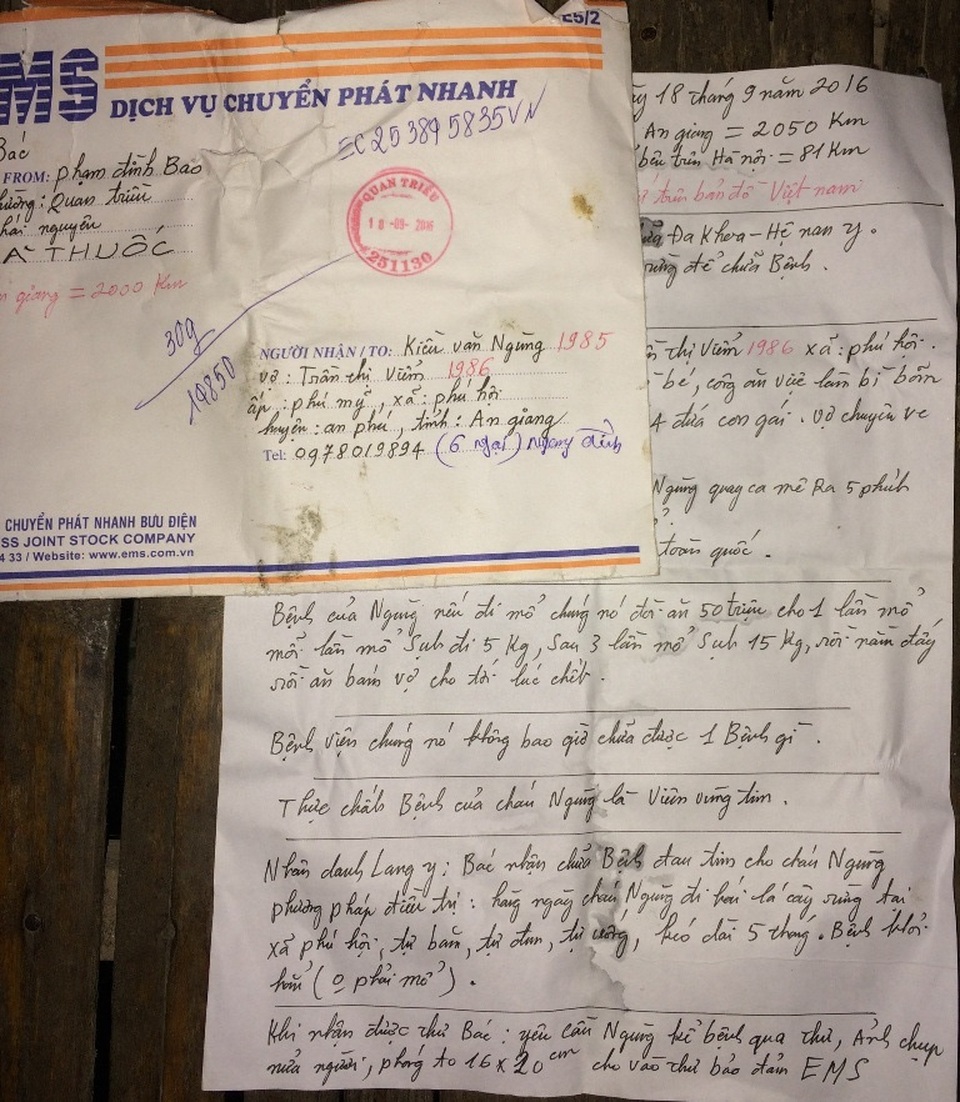 E5/2
EMS
DỊCH VỤ CHUYỂN PHÁT NHANH
EC 25 389 5835 VN
Bác
FROM: phạm đình Bao
phường: Quan triều
thái nguyên
THUỐC
giang = 2000 Km
QUAN TRIỀU
18-09-2016
251130
30g
19850
NGƯỜI NHẬN / TO: Kiều văn Ngừng 1985
vợ: Trần thị Viễm 1986
ấp: phú mỹ, xã: phú hội
huyện: an phú, tỉnh: An giang
Tel: 0978019894 (6 Ngại) Ngang đỉnh
CHUYỂN PHÁT NHANH BƯU ĐIỆN
SS JOINT STOCK COMPANY
4 33 / Website: www.ems.com.vn
18 tháng 9 năm 2016
An giang = 2050 Km
bên trên Hà nội = 81 Km
trên bản đồ Việt nam
Đa Khoa - Hệ nan y.
rừng để chữa Bệnh.
thị Viễm 1986 xã: phú hội.
bé, công ăn việc làm bì bõm
4 đứa con gái. vợ chuyên ve
Ngừng quay ca mê Ra 5 phút
toàn quốc.
Bệnh của Ngừng nếu đi mổ chúng nó đòi ăn 50 triệu cho 1 lần mổ
mỗi lần mổ Sụt đi 5 Kg, Sau 3 lần mổ Sụt 15 Kg, rồi nằm đấy
rồi ăn bám vợ cho tới lúc chết.
Bệnh viện chúng nó không bao giờ chữa được 1 Bệnh gì.
Thực chất Bệnh của cháu Ngừng là Viêm vùng tim.
Nhân danh Lang y: Bác nhận chữa Bệnh đau tim cho cháu Ngừng
phương pháp điều trị: hàng ngày cháu Ngừng đi hái lá cây rừng tại
xã phú hội, tự băm, tự đun, tự uống, kéo dài 5 tháng. Bệnh khỏi
hẳn (0 phải mổ).
Khi nhận được thư Bác: yêu cầu Ngừng kể bệnh qua thư, Ảnh chụp
nửa người, phóng to 16 x 20 cm cho vào thư bảo đảm EMS